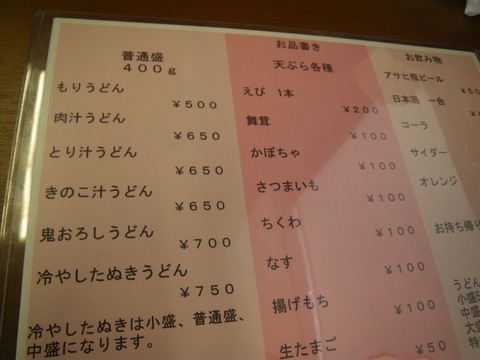 お品書き
普通盛
400g
もりうどん
¥500
肉汁うどん
¥650
とり汁うどん
¥650
きのこ汁うどん
¥650
鬼おろしうどん
¥700
冷やしたぬきうどん
¥750
冷やしたぬきは小盛、普通盛、
中盛になります。
天ぷら各種
えび 1本
¥200
舞茸
¥100
かぼちゃ
¥100
さつまいも
¥100
ちくわ
¥100
なす
¥100
揚げもち
¥100
生たまご
¥50
お飲み物
アサヒ瓶ビール
日本酒 一合
コーラ
サイダー
オレンジ
お持ち帰り
うどん
小盛
中盛
大盛